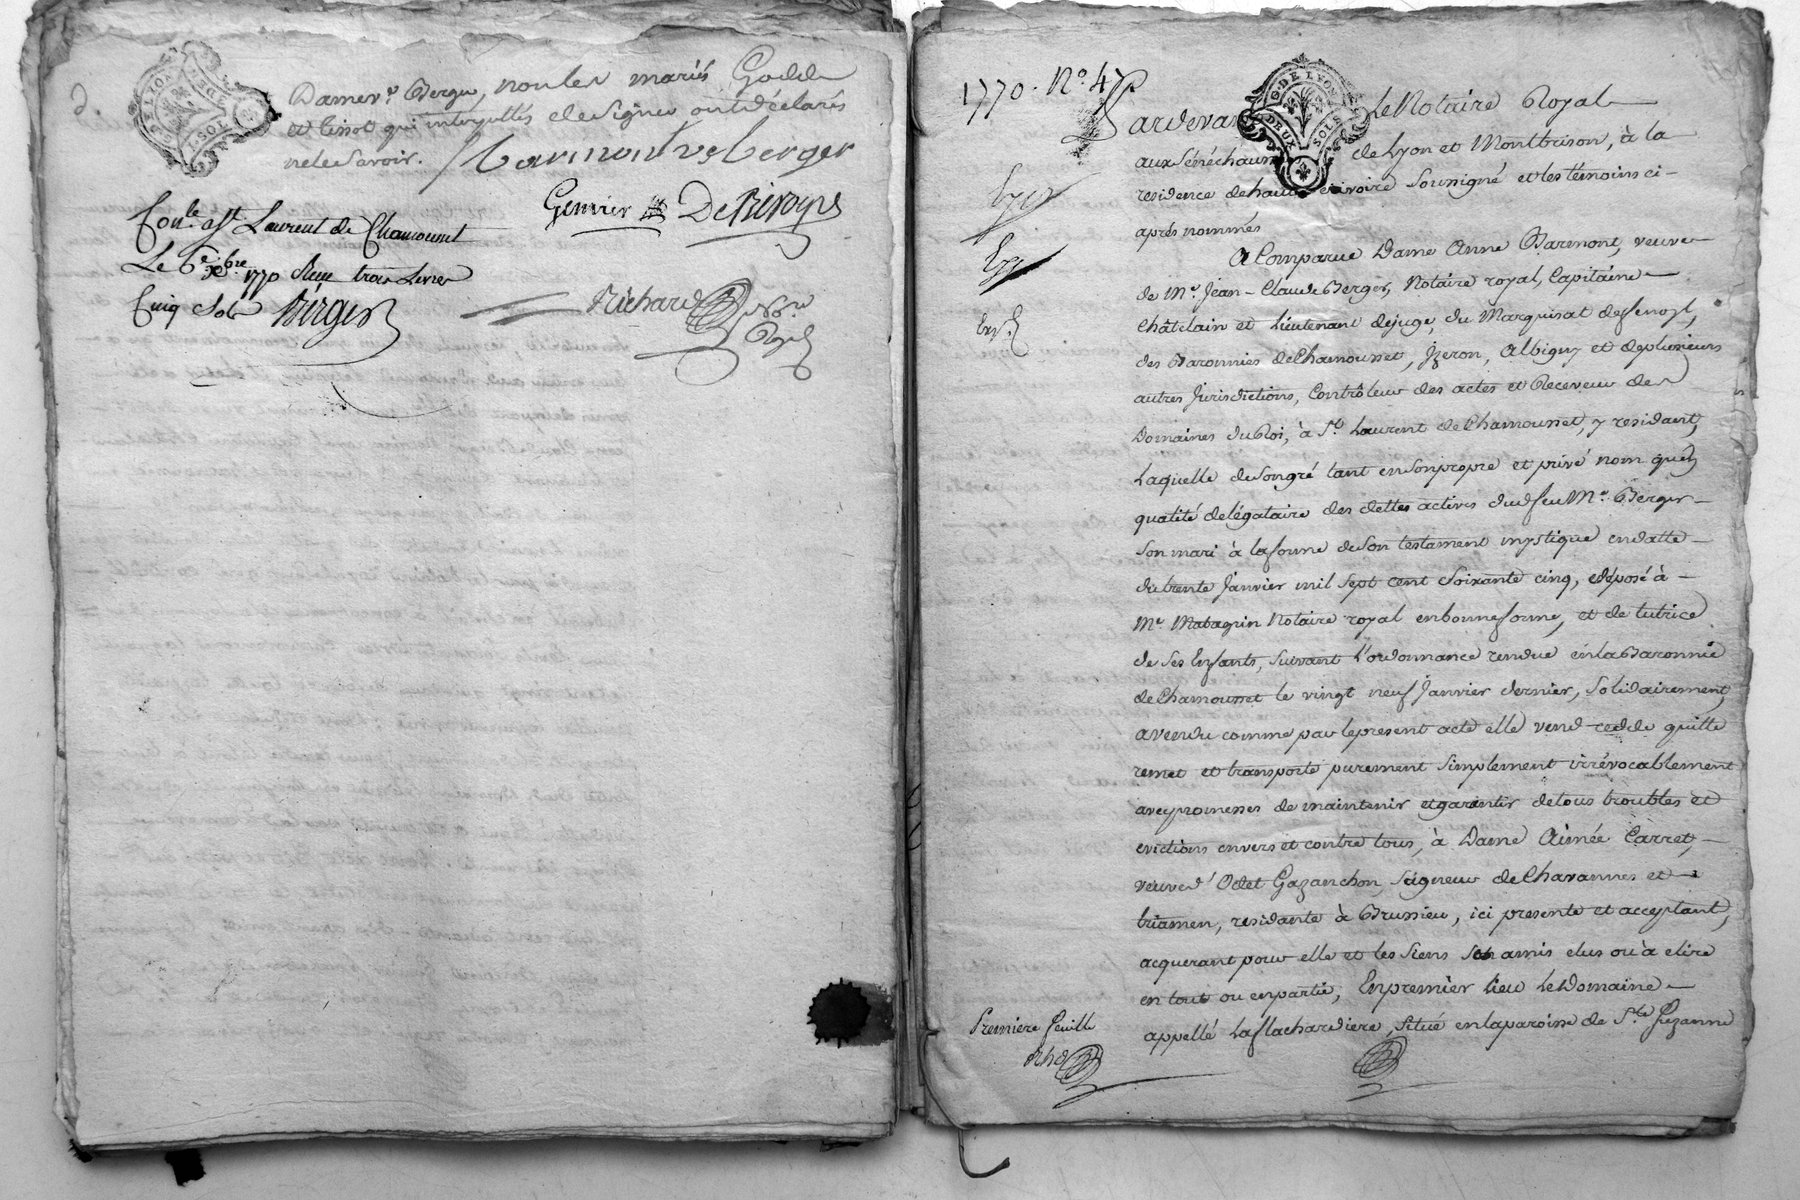 Dame v.e Berger, non les mariés Godde
et Tissot qui interpellés de signer ont déclarés
ne le savoir. Barmont ve berger
G. DE LYON
DEUX SOLS
Genvrier De Rivoyre
Con.le à St Laurent de Chamousset
Le 6e xbre 1770 Reçu trois Livres
Cinq Sols Berger
Richard No.re Royal
1770. No. 47
Pardevant le Notaire Royal
G. DE LYON
DEUX SOLS
aux Sénéchaussées de Lyon et Montbrison, à la
residence de haute rivoire soussigné et les témoins ci-
aprés nommés
A Comparue Dame Anne Barmont, veuve
de Me. Jean-Claude Berger, Notaire royal, Capitaine
Châtelain et Lieutenant de juge, du Marquisat de fenoyl,
des Baronnies de Chamousset, Jzeron, Albigny et de plusieurs
autres Jurisdictions, Contrôleur des actes et Receveur des
Domaines du Roi, à St. Laurent de Chamousset, y residant,
Laquelle de son gré tant en son propre et privé nom qu'en
qualité de légataire des dettes actives dud feu Me. Berger
son mari à la forme de son testament mystique en datte
du trente Janvier mil sept cent soixante cinq, déposé à
Me notaire royal en bonne forme, et de tutrice
de ses Enfants, suivant l'ordonnance rendue en la Baronnie
de Chamousset le vingt neuf Janvier dernier, solidairement,
a vendu comme par le present acte elle vend cedde quitte
remet et transporte purement simplement irrévocablement
avec promesses de maintenir et garantir de tous troubles et
evictions envers et contre tous, à Dame Aimée Carret,
veuve d'Odet Gazanchon, Seigneur de Chavannes et
triamen, residante à Brussieu, ici presente et acceptant,
acquerant pour elle et les siens ses amis elus ou à elire
en tout ou en partie, En premier Lieu Le Domaine
appellé La flachardiere, situé en la paroisse de Ste. fezanne
Premiere feuille
Rhd